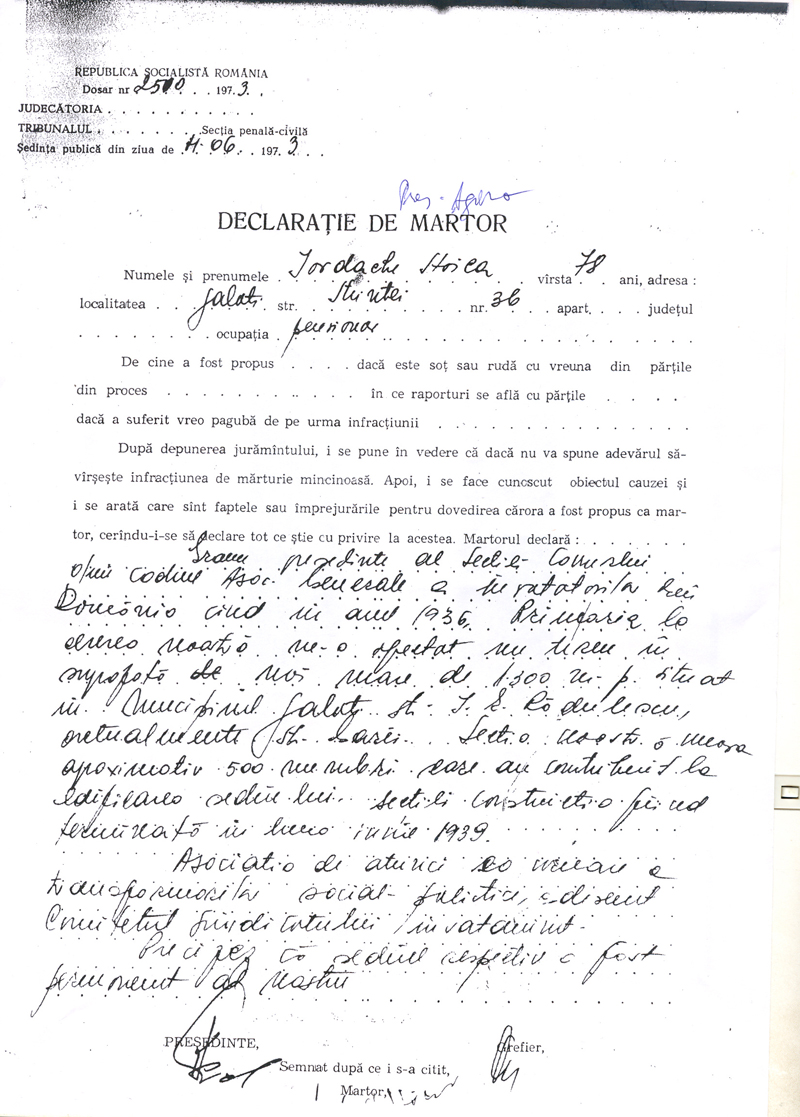 REPUBLICA SOCIALISTĂ ROMÂNIA
Dosar nr 2510 . . 197 3 .
JUDECĂTORIA . . . . . . . . . . .
TRIBUNALUL . . . . . . . Secția penală-civilă
Ședința publică din ziua de . 11.06. . . 197 3 . . .
DECLARAȚIE DE MARTOR
Numele și prenumele . Iordache Stoica . . vîrsta 78 . ani, adresa :
localitatea . . . Galați str. . . . . . . nr. 36 . . apart. . . . județul
. . . . . . . . ocupația . pensionar . . . . . .
De cine a fost propus . . . . dacă este soț sau rudă cu vreuna din părțile
din proces . . . . . . . . . . . . în ce raporturi se află cu părțile . . . .
dacă a suferit vreo pagubă de pe urma infracțiunii . . . . . . . . . . . . . .
După depunerea jurămîntului, i se pune în vedere că dacă nu va spune adevărul să-
vîrșește infracțiunea de mărturie mincinoasă. Apoi, i se face cunoscut obiectul cauzei și
i se arată care sînt faptele sau împrejurările pentru dovedirea cărora a fost propus ca mar-
tor, cerîndu-i-se să declare tot ce știe cu privire la acestea. Martorul declară : . . . . . .
președinte al Secției
Asoc. Generale a învățătorilor din
România cînd în anul 1936 Primăria la
cererea noastră ne-a un teren în
de noi mare de 1.300 m.p. situat
în Municipiul Galați str. I. E. Rădulescu,
actualmente str. Secția noastră avea
aproximativ 500 membri care au contribuit la
edificarea sediului secției construcția fiind
terminată în luna iunie 1939.
Asociația de atunci
social
Comitetul Sindicatului învățămînt.
Precizez că sediul respectiv a fost
permanent al nostru
PREȘEDINTE,
Grefier,
Semnat după ce i s-a citit,
Martor,